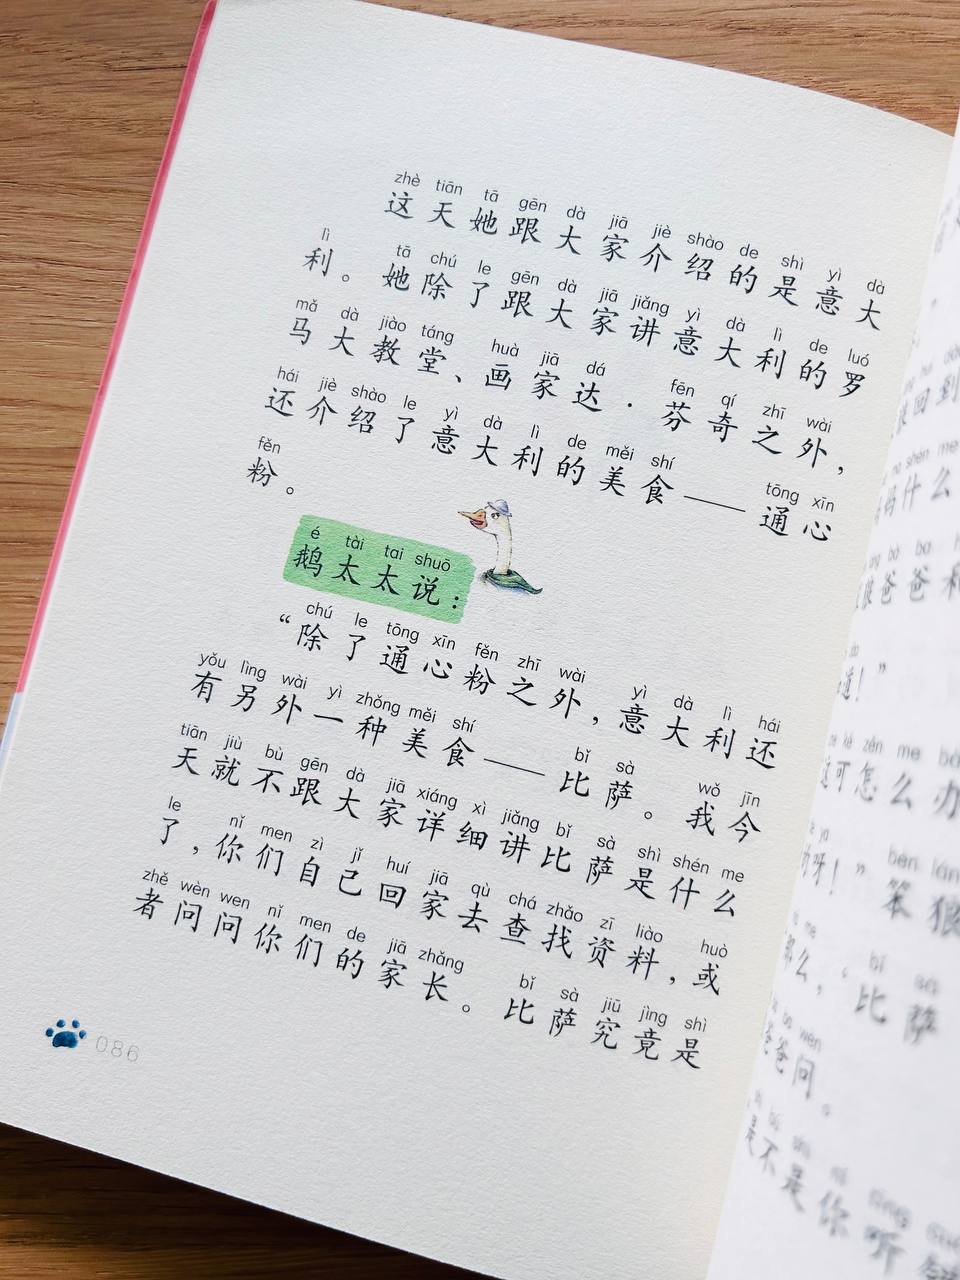 zhè tiān tā gēn dà jiā jiè shào de shì yì dà
这天她跟大家介绍的是意大
lì tā chú le gēn dà jiā jiǎng yì dà lì de luó
利。她除了跟大家讲意大利的罗
mǎ dà jiào táng huà jiā dá fēn qí zhī wài
马大教堂、画家达·芬奇之外，
hái jiè shào le yì dà lì de měi shí tōng xīn
还介绍了意大利的美食——通心
fěn
粉。
é tài tai shuō
鹅太太说：
chú le tōng xīn fěn zhī wài yì dà lì hái
“除了通心粉之外，意大利还
yǒu lìng wài yì zhǒng měi shí bǐ sà wǒ jīn
有另外一种美食——比萨。我今
tiān jiù bù gēn dà jiā xiáng xì jiǎng bǐ sà shì shén me
天就不跟大家详细讲比萨是什么
le nǐ men zì jǐ huí jiā qù chá zhǎo zī liào huò
了，你们自己回家去查找资料，或
zhě wèn wen nǐ men de jiā zhǎng bǐ sà jiū jìng shì
者问问你们的家长。比萨究竟是
086
回到
shén me
妈什么
bà ba
爸爸和
道！”
kě zěn me bàn
可怎么办
ya bèn láng
呀！”笨狼
me bǐ sà
那么，‘比萨
ba wèn
爸爸问。
是不是你听